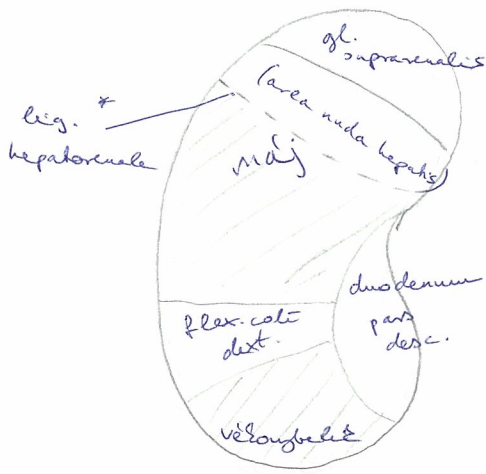 gl.
suprarenalis
(area nuda hepatis)
lig. *
hepatorenale
máj
duodenum
pars
desc.
flex. coli
dext.
vékonybelek